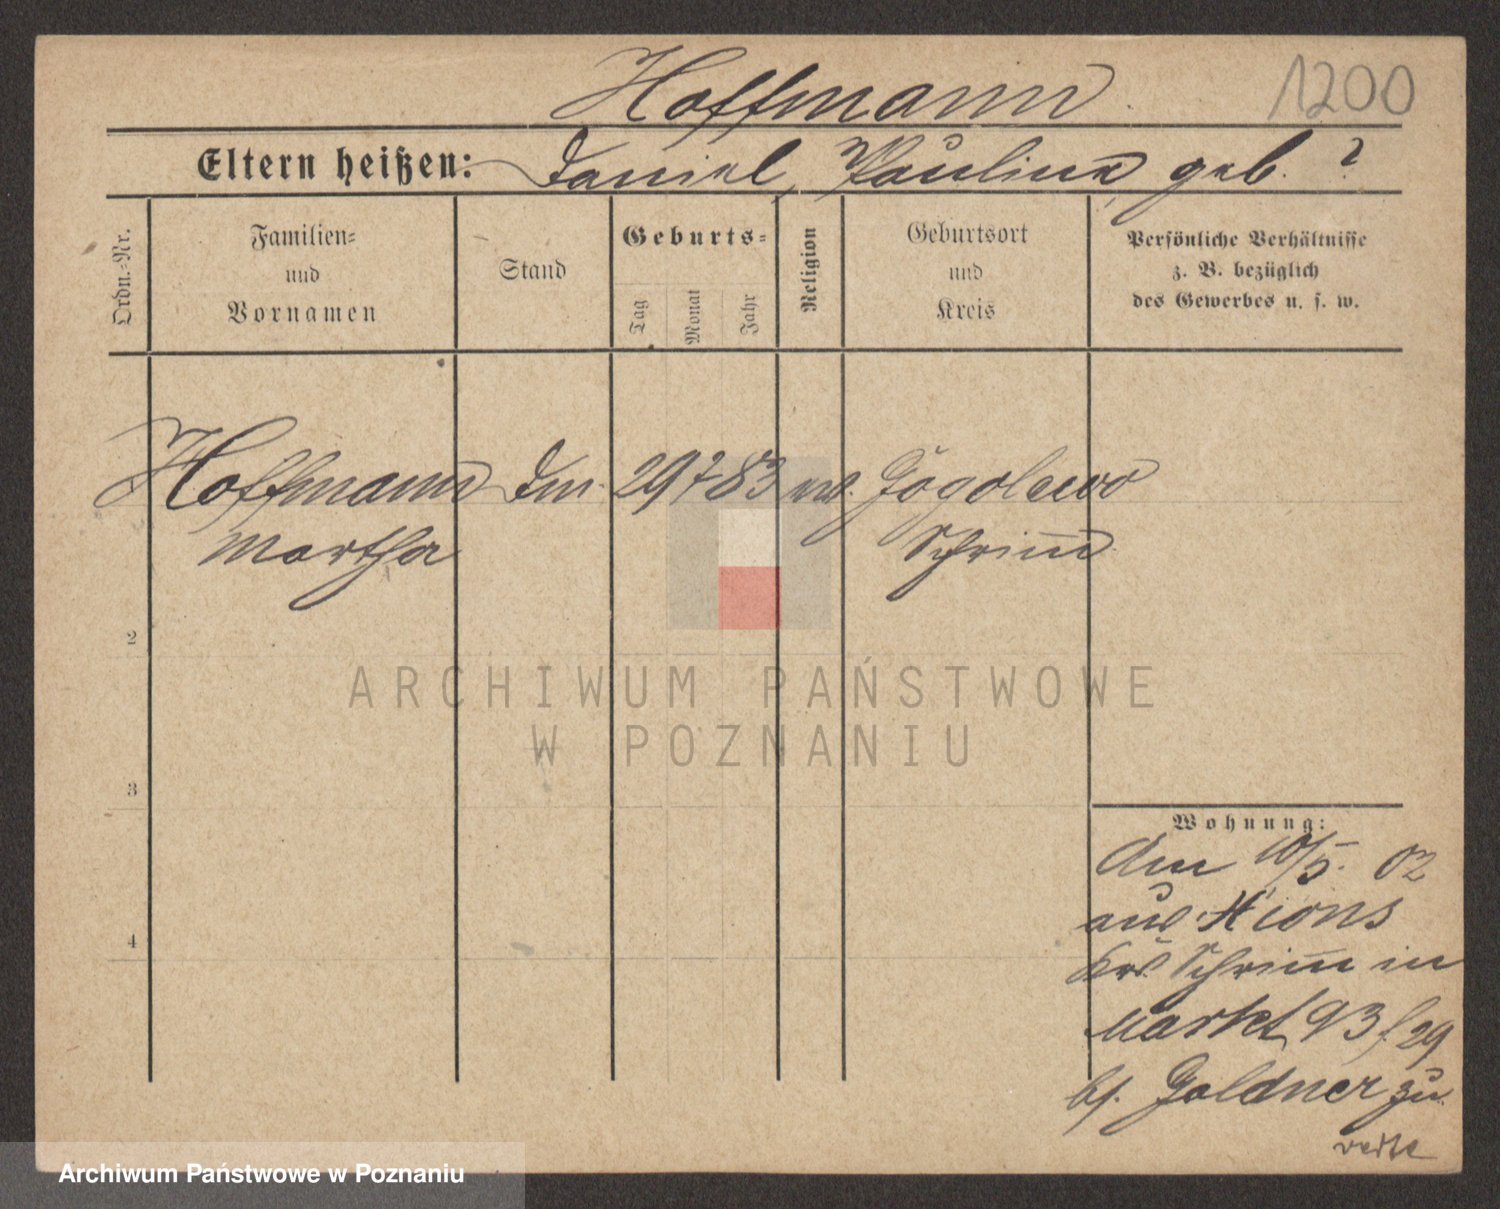 Hoffmann 1200
Eltern heißen: Daniel, Pauline geb. ?
Ordn.-Nr.
Familien-
und
Vornamen
Stand
Geburts-
Tag
Monat
Jahr
Religion
Geburtsort
und
Kreis
Persönliche Verhältnisse
z. B. bezüglich
des Gewerbes u. s. w.
Hoffmann 29 7 83 Gogolewo
Martha Schrimm
2
3
4
ARCHIWUM PAŃSTWOWE
W POZNANIU
Wohnung:
Am 10/5. 02
aus Xions
Krs. Schrimm in
Markt 93 f 29
bs. Goldner zu
Archiwum Państwowe w Poznaniu